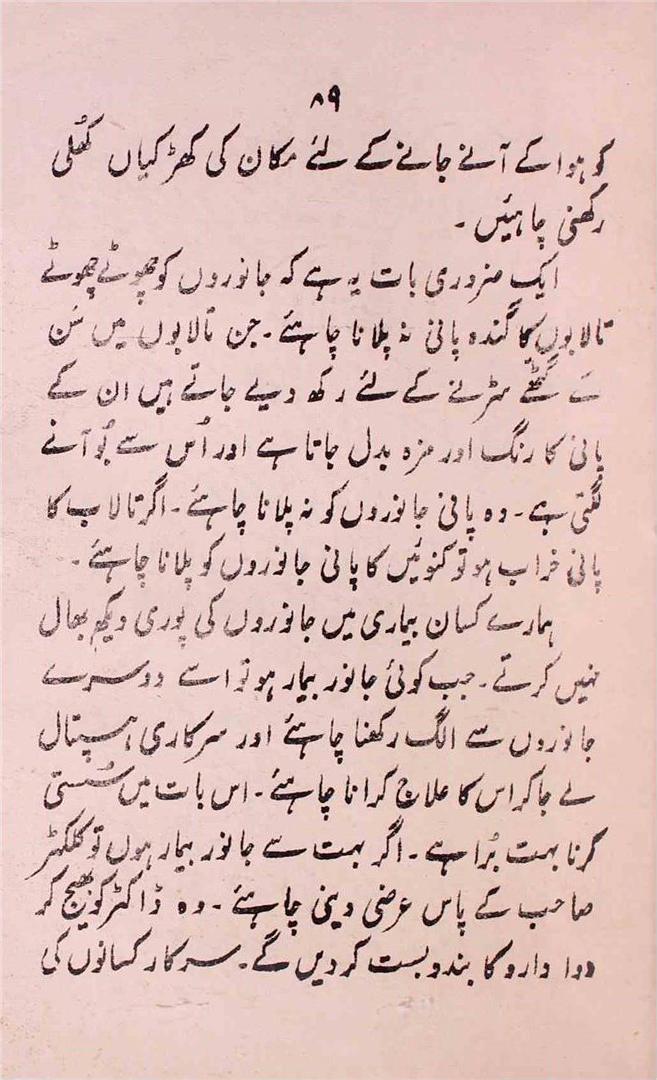 ۸۹
کو ہوا کے آنے جانے کے لئے مکان کی کھڑکیاں کھُلی
رکھنی چاہئیں ۔
ایک ضروری بات یہ ہے کہ جانوروں کو چھوٹے چھوٹے
تالابوں کا گندہ پانی نہ پلانا چاہئے ۔ جن تالابوں میں سَن
کے گٹھے سڑنے کے لئے رکھ دیے جاتے ہیں ان کے
پانی کا رنگ اور مزہ بدل جاتا ہے اور اُس سے بُو آنے
لگتی ہے ۔ وہ پانی جانوروں کو نہ پلانا چاہئے ۔ اگر تالاب کا
پانی خراب ہو تو کنوئیں کا پانی جانوروں کو پلانا چاہئے ۔
ہمارے کسان بیماری میں جانوروں کی پوری دیکھ بھال
نہیں کرتے ۔ جب کوئی جانور بیمار ہو تو اسے دوسرے
جانوروں سے الگ رکھنا چاہئے اور سرکاری ہسپتال
لے جا کر اس کا علاج کرانا چاہئے ۔ اس بات میں سُستی
کرنا بہت بُرا ہے ۔ اگر بہت سے جانور بیمار ہوں تو کلکٹر
صاحب کے پاس عرضی دینی چاہئے ۔ وہ ڈاکٹر کو بھیج کر
دوا دارو کا بندوبست کر دیں گے ۔ سرکار کسانوں کی